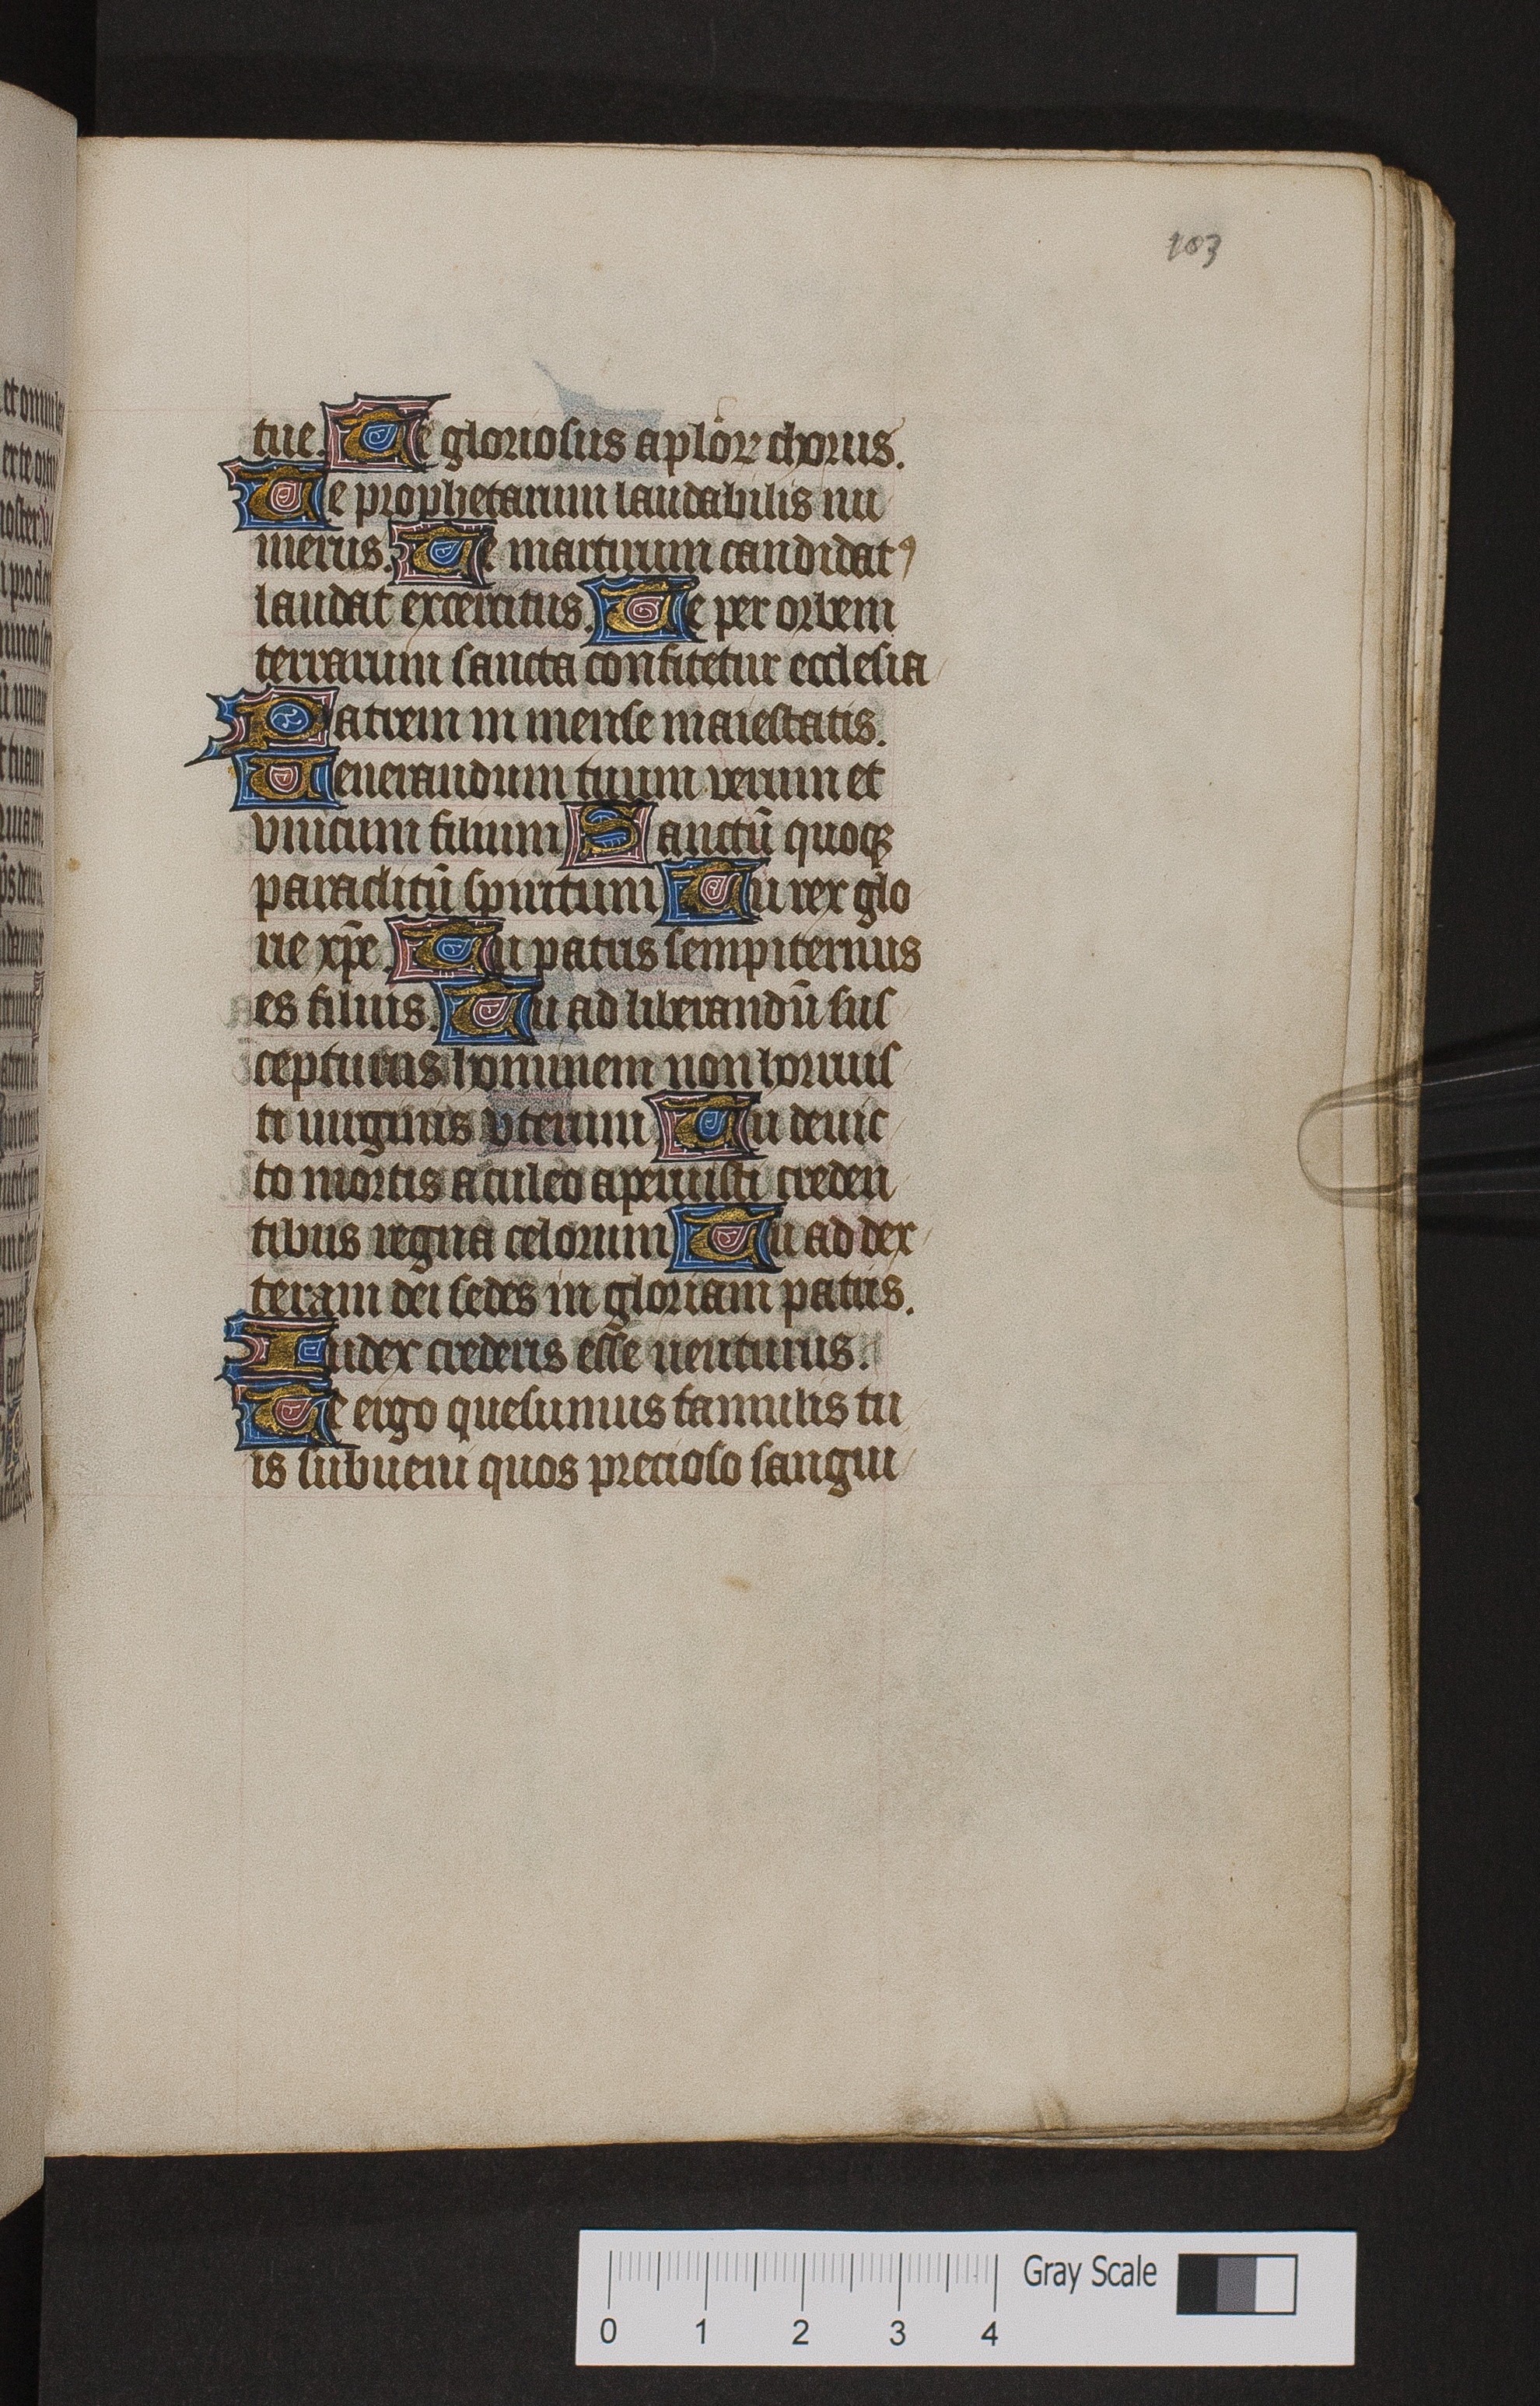 103
tue. Te gloriosus aploꝝ chorus.
Te prophetarum laudabilis nu
merus. Te martirum candidatꝰ
laudat excercitus. Te per orbem
terrarum sancta confitetur ecclesia
Patrem in mense maiestatis.
Uenerandum tuum verum et
vnicum filium Sanctū quoqꝫ
paraclitū spiritum Tu rex glo
rie xp̄e. Tu patris sempiternus
es filius. Tu ad liberandū sus
cepturus hominem non horruis
ti uirginis vterum Tu deuic
to mortis aculeo aperuisti creden
tibus regna celorum Tu ad dex
teram dei sedes in gloriam patris.
Iudex crederis esse uenturus.
Te ergo quesumus famulis tu
is subueni quos precioso sangui
Gray Scale
0 1 2 3 4